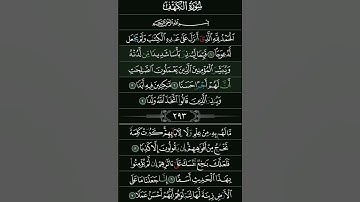 سُورَةُ الكَهْفِ
بِسْمِ اللَّهِ الرَّحْمَٰنِ الرَّحِيمِ
الْحَمْدُ لِلَّهِ الَّذِي أَنْزَلَ عَلَىٰ عَبْدِهِ الْكِتَابَ وَلَمْ يَجْعَل
لَّهُ عِوَجًا ۜ ١ قَيِّمًا لِّيُنذِرَ بَأْسًا شَدِيدًا مِّن لَّدُنْهُ
وَيُبَشِّرَ الْمُؤْمِنِينَ الَّذِينَ يَعْمَلُونَ الصَّالِحَاتِ
أَنَّ لَهُمْ أَجْرًا حَسَنًا ٢ مَّاكِثِينَ فِيهِ أَبَدًا ٣
وَيُنذِرَ الَّذِينَ قَالُوا اتَّخَذَ اللَّهُ وَلَدًا ٤
٢٩٣
مَّا لَهُم بِهِ مِنْ عِلْمٍ وَلَا لِآبَائِهِمْ ۚ كَبُرَتْ كَلِمَةً
تَخْرُجُ مِنْ أَفْوَاهِهِمْ ۚ إِن يَقُولُونَ إِلَّا كَذِبًا ٥
فَلَعَلَّكَ بَاخِعٌ نَّفْسَكَ عَلَىٰ آثَارِهِمْ إِن لَّمْ يُؤْمِنُوا
بِهَٰذَا الْحَدِيثِ أَسَفًا ٦ إِنَّا جَعَلْنَا مَا عَلَى
الْأَرْضِ زِينَةً لَّهَا لِنَبْلُوَهُمْ أَيُّهُمْ أَحْسَنُ عَمَلًا ٧